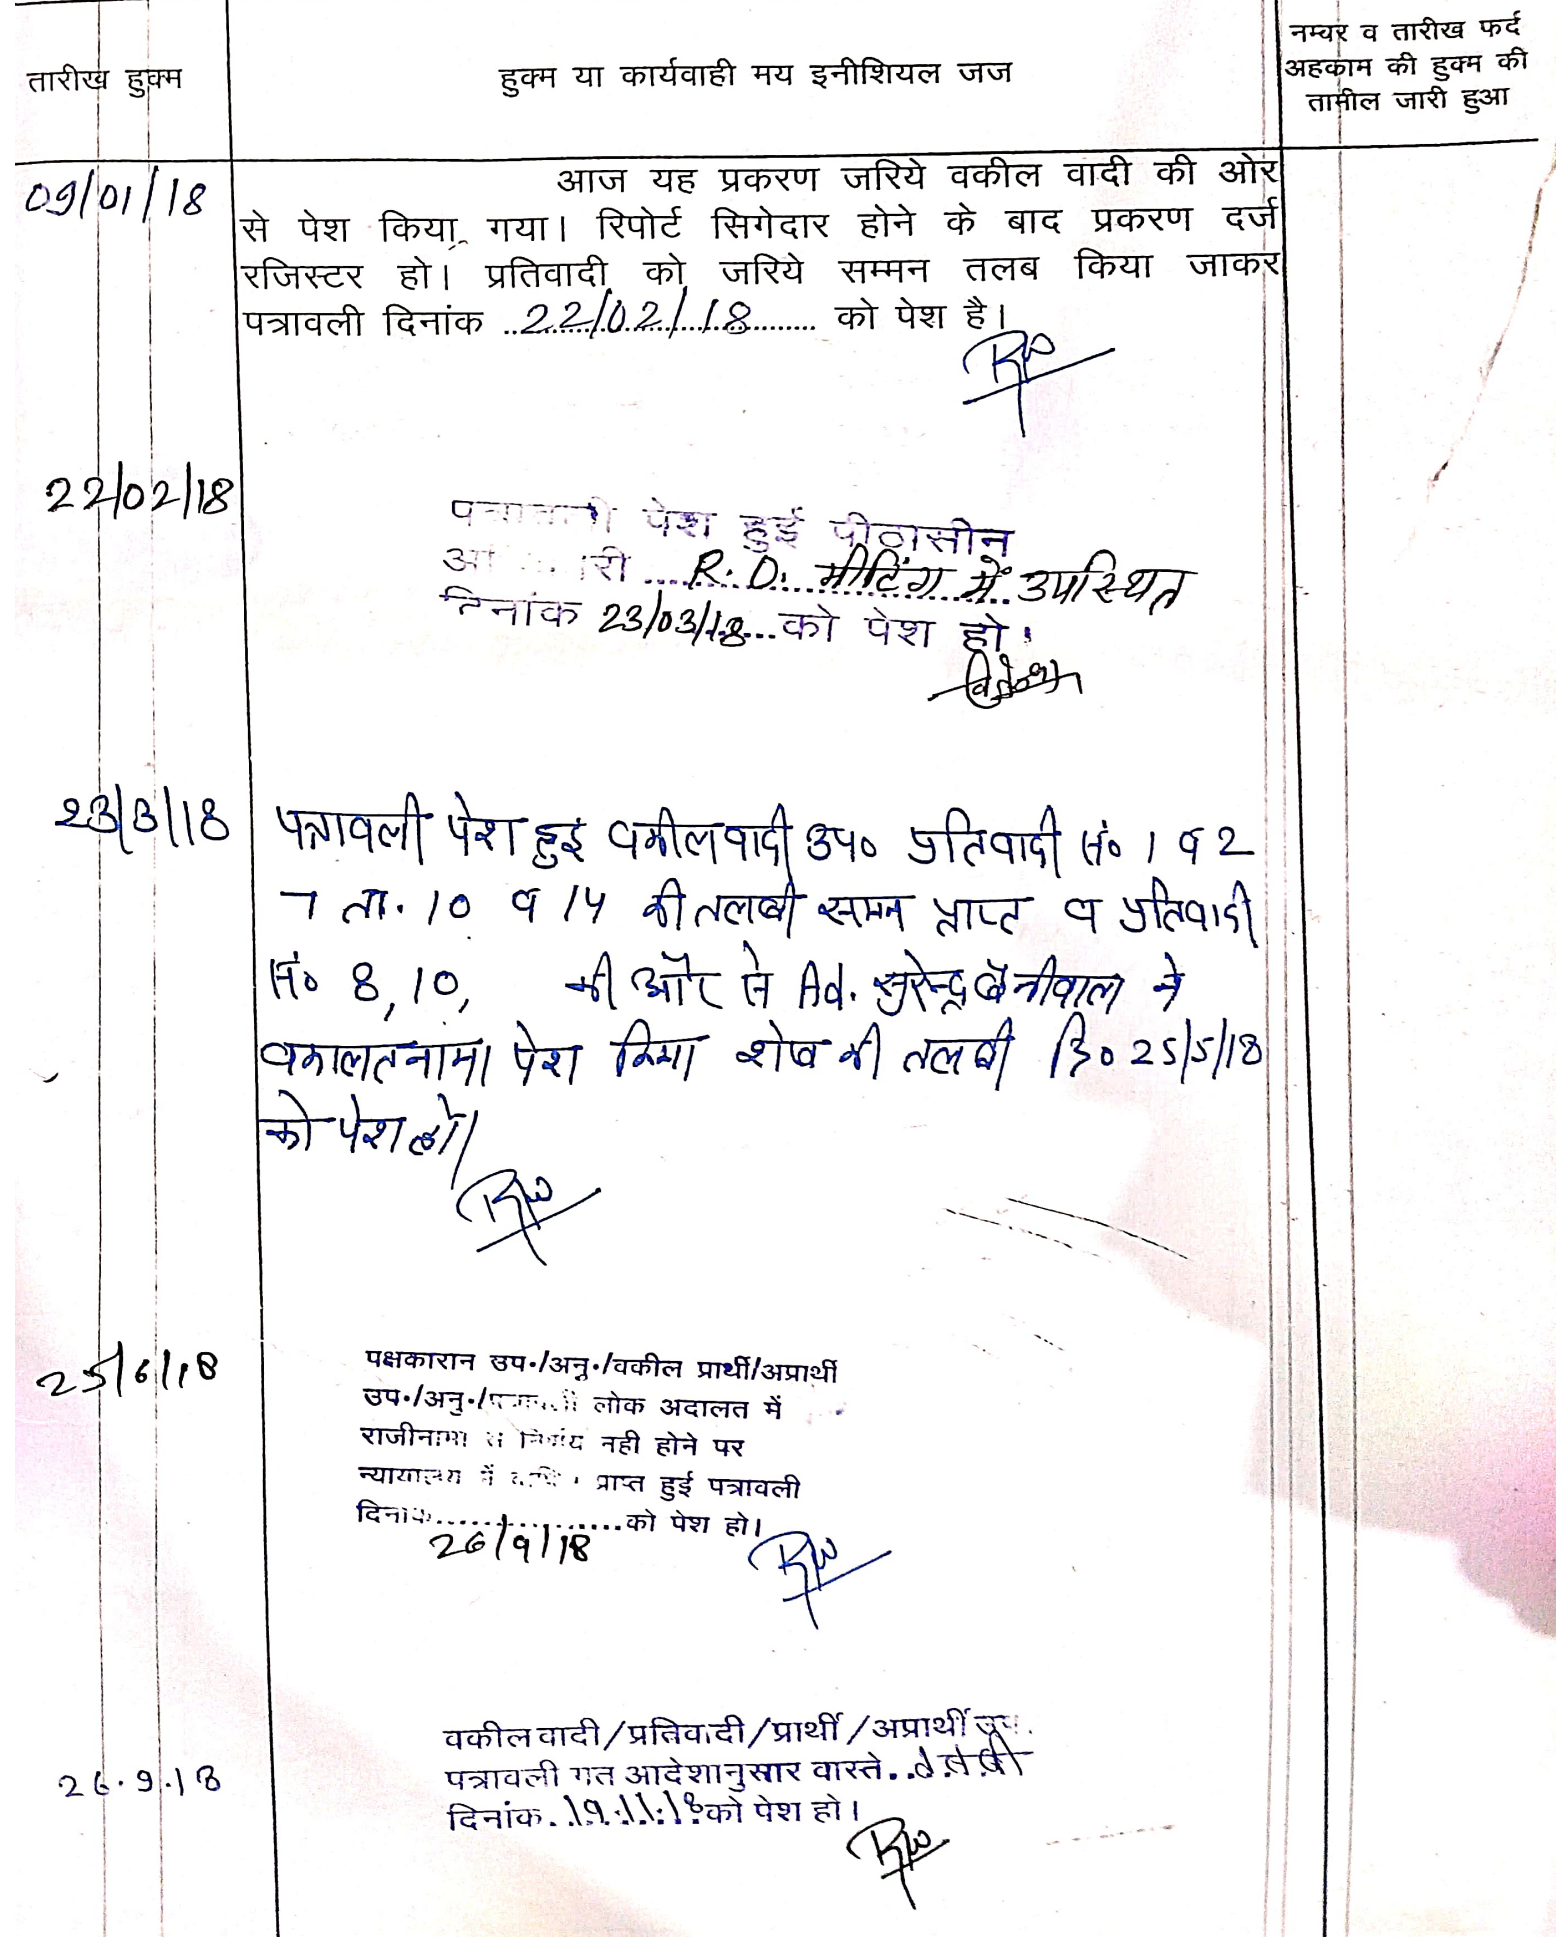 तारीख हुक्म
हुक्म या कार्यवाही मय इनीशियल जज
नम्बर व तारीख फर्द
अहकाम की हुक्म की
तामील जारी हुआ
09/01/18
आज यह प्रकरण जरिये वकील वादी की ओर
से पेश किया गया। रिपोर्ट सिगेदार होने के बाद प्रकरण दर्ज
रजिस्टर हो। प्रतिवादी को जरिये सम्मन तलब किया जाकर
पत्रावली दिनांक ..22/02/18.. को पेश है।
22/02/18
पत्रावली पेश हुई पीठासीन
R.O. मीटिंग में उपस्थित
दिनांक 23/03/18...को पेश हो।
23/3/18
पत्रावली पेश हुई वकील वादी उप० प्रतिवादी सं० 1 व 2
ता. 10 व 14 की तलबी समन प्राप्ट व प्रतिवादी
सं० 8, 10, की और से Ad. सुरेन्द्र बैनीवाल ने
वकालतनामा पेश किया शेष की तलबी दि० 25/5/18
को पेश हो।
25/6/18
पक्षकारान उप./अनु./वकील प्रार्थी/अप्रार्थी
उप./अनु./पत्रावली लोक अदालत में
राजीनामा से निर्णय नही होने पर
न्यायालय में प्राप्त हुई पत्रावली
दिनांक..................को पेश हो।
26/9/18
26.9.18
वकील वादी/प्रतिवादी/प्रार्थी/अप्रार्थी उप.
पत्रावली गत आदेशानुसार वास्ते..तलबी
दिनांक.19.11.18को पेश हो।